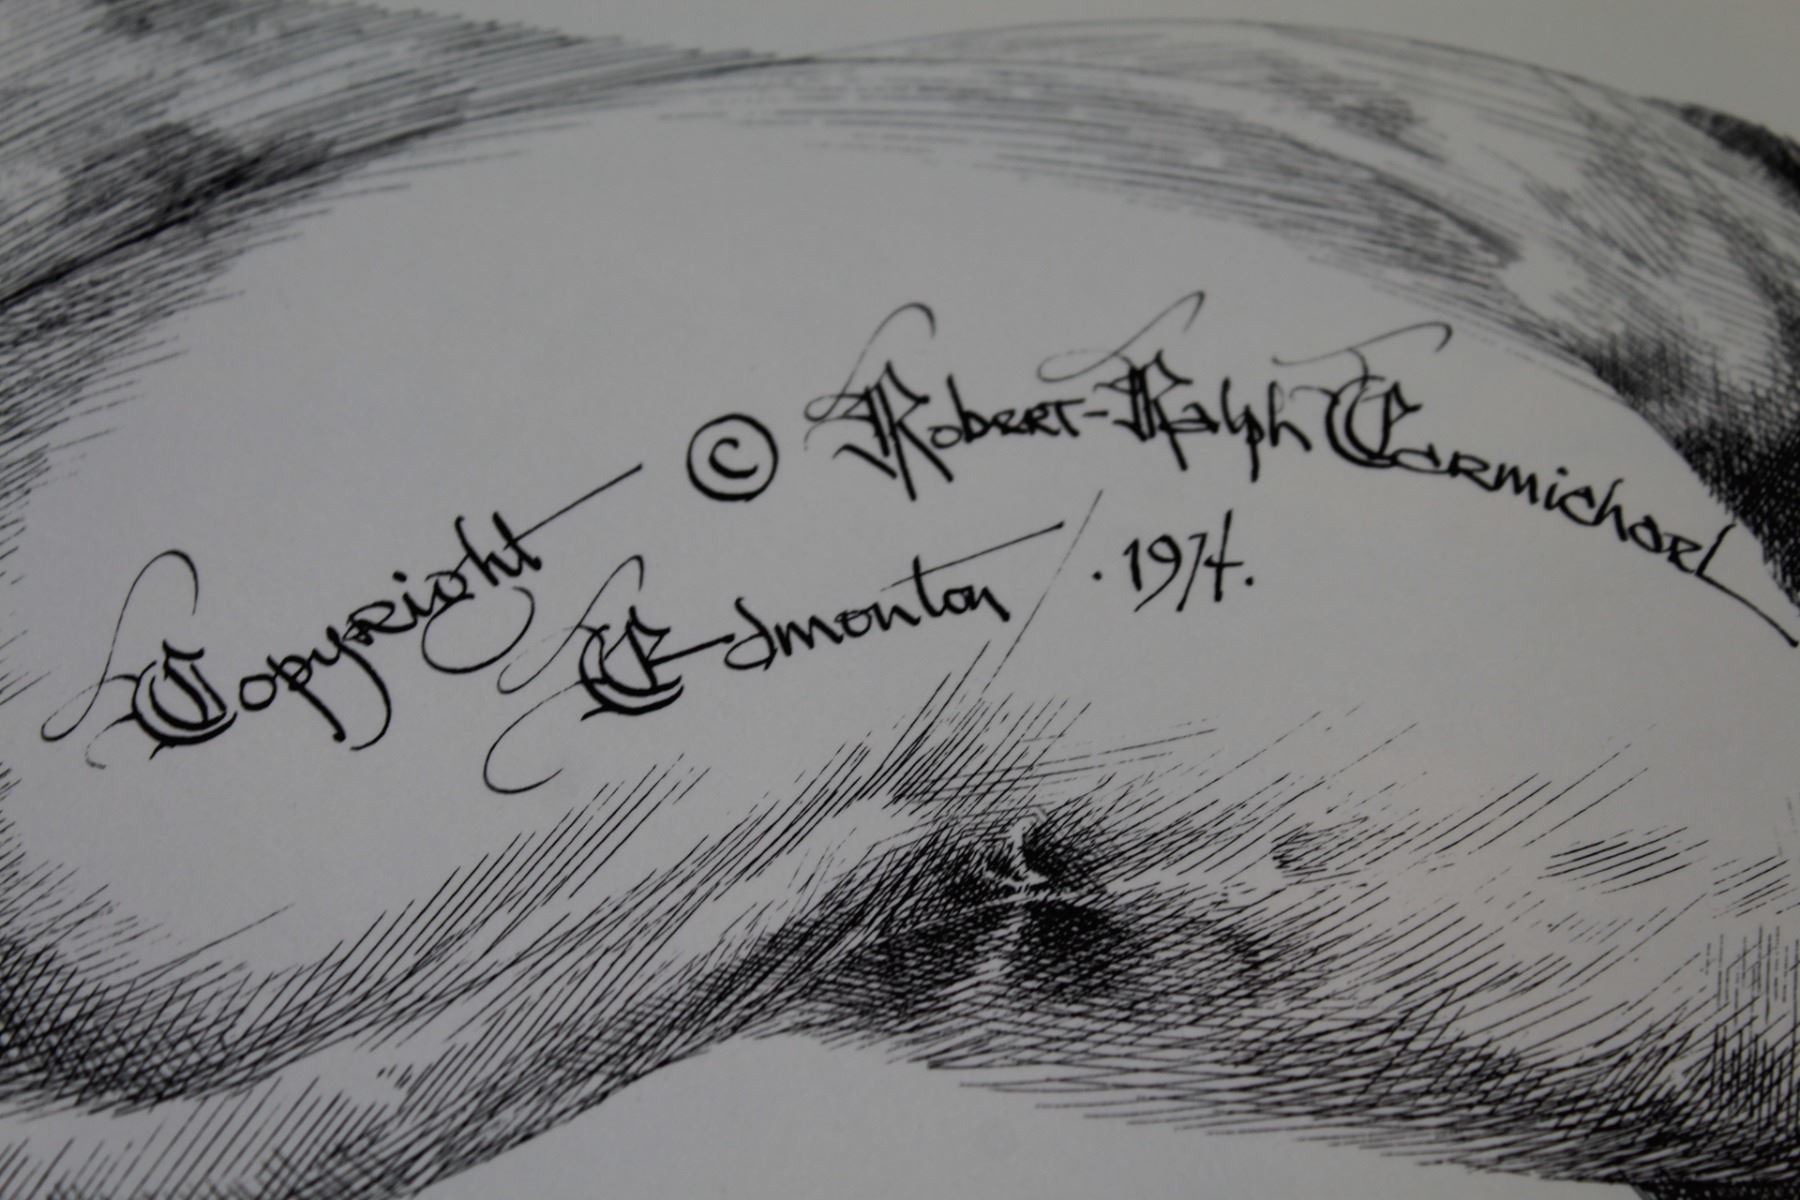 Copyright © Robert-Ralph Carmichael
Edmonton · 1974.